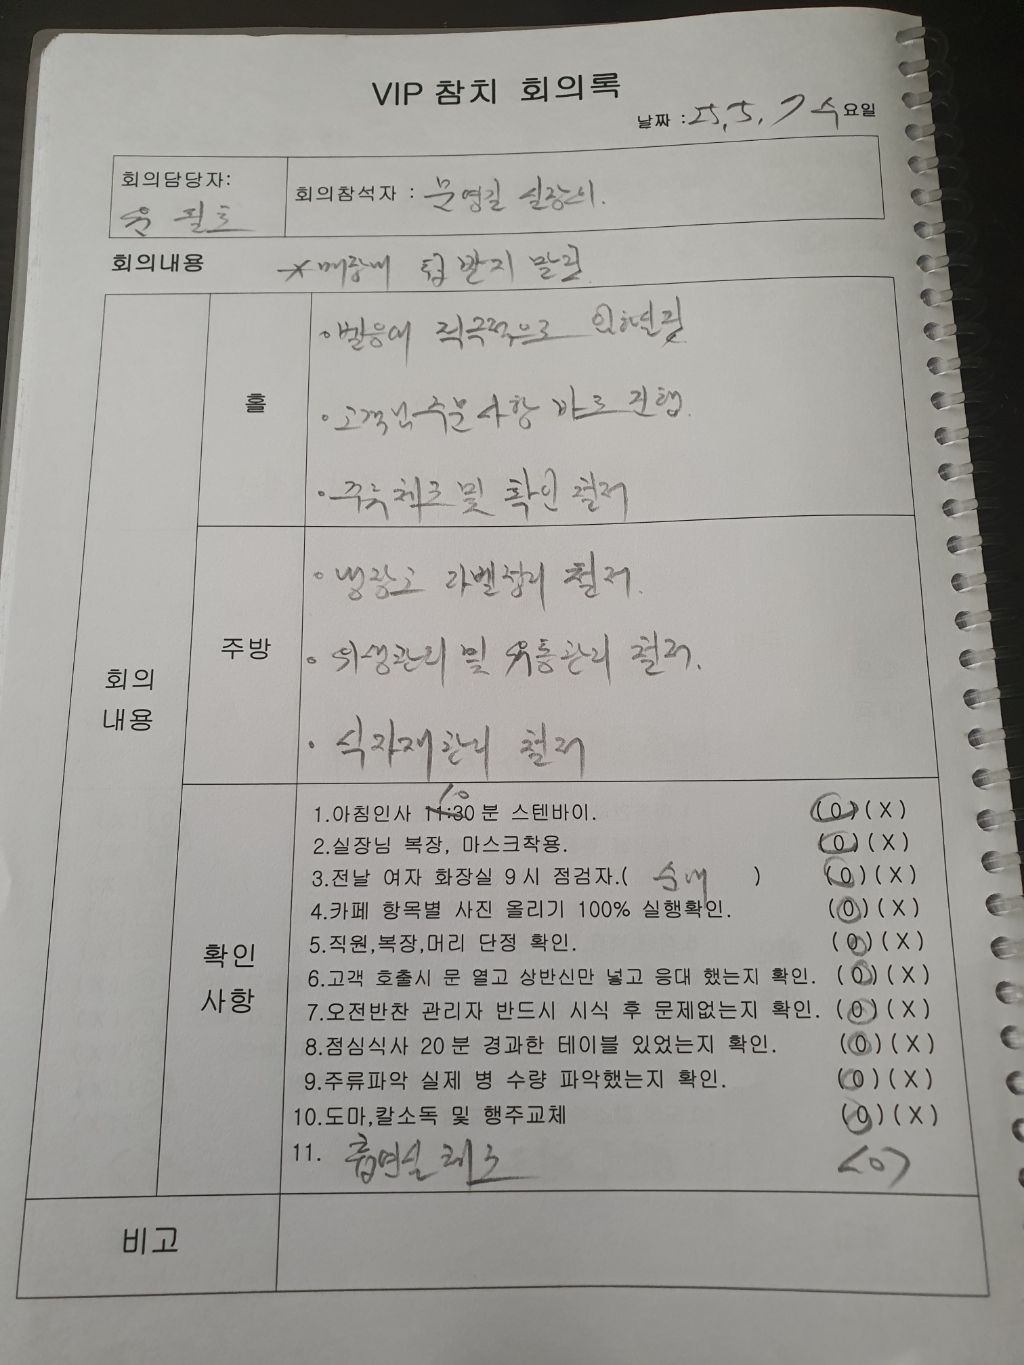 VIP 참치 회의록
날짜 : 25. 5. 7 수요일
회의담당자:
유 필호
회의참석자 : 문영길 실장외.
회의내용
* 매장내 팁 받지 말것
홀
• 벨응대 적극적으로
• 고객님 주문사항 바로 진행.
• 주류체크 및 확인 철저
회의
내용
주방
• 냉장고 라벨정리 철저.
• 위생관리 및 유통관리 철저.
• 식자재관리 철저
확인
사항
10
1.아침인사 11:30분 스텐바이. (O)(X)
2.실장님 복장, 마스크착용. (O)(X)
3.전날 여자 화장실 9시 점검자.( 순애 ) (O)(X)
4.카페 항목별 사진 올리기 100% 실행확인. (O)(X)
5.직원,복장,머리 단정 확인. (O)(X)
6.고객 호출시 문 열고 상반신만 넣고 응대 했는지 확인. (O)(X)
7.오전반찬 관리자 반드시 시식 후 문제없는지 확인. (O)(X)
8.점심식사 20분 경과한 테이블 있었는지 확인. (O)(X)
9.주류파악 실제 병 수량 파악했는지 확인. (O)(X)
10.도마,칼소독 및 행주교체 (O)(X)
11. 흡연실 체크 (O)
비고